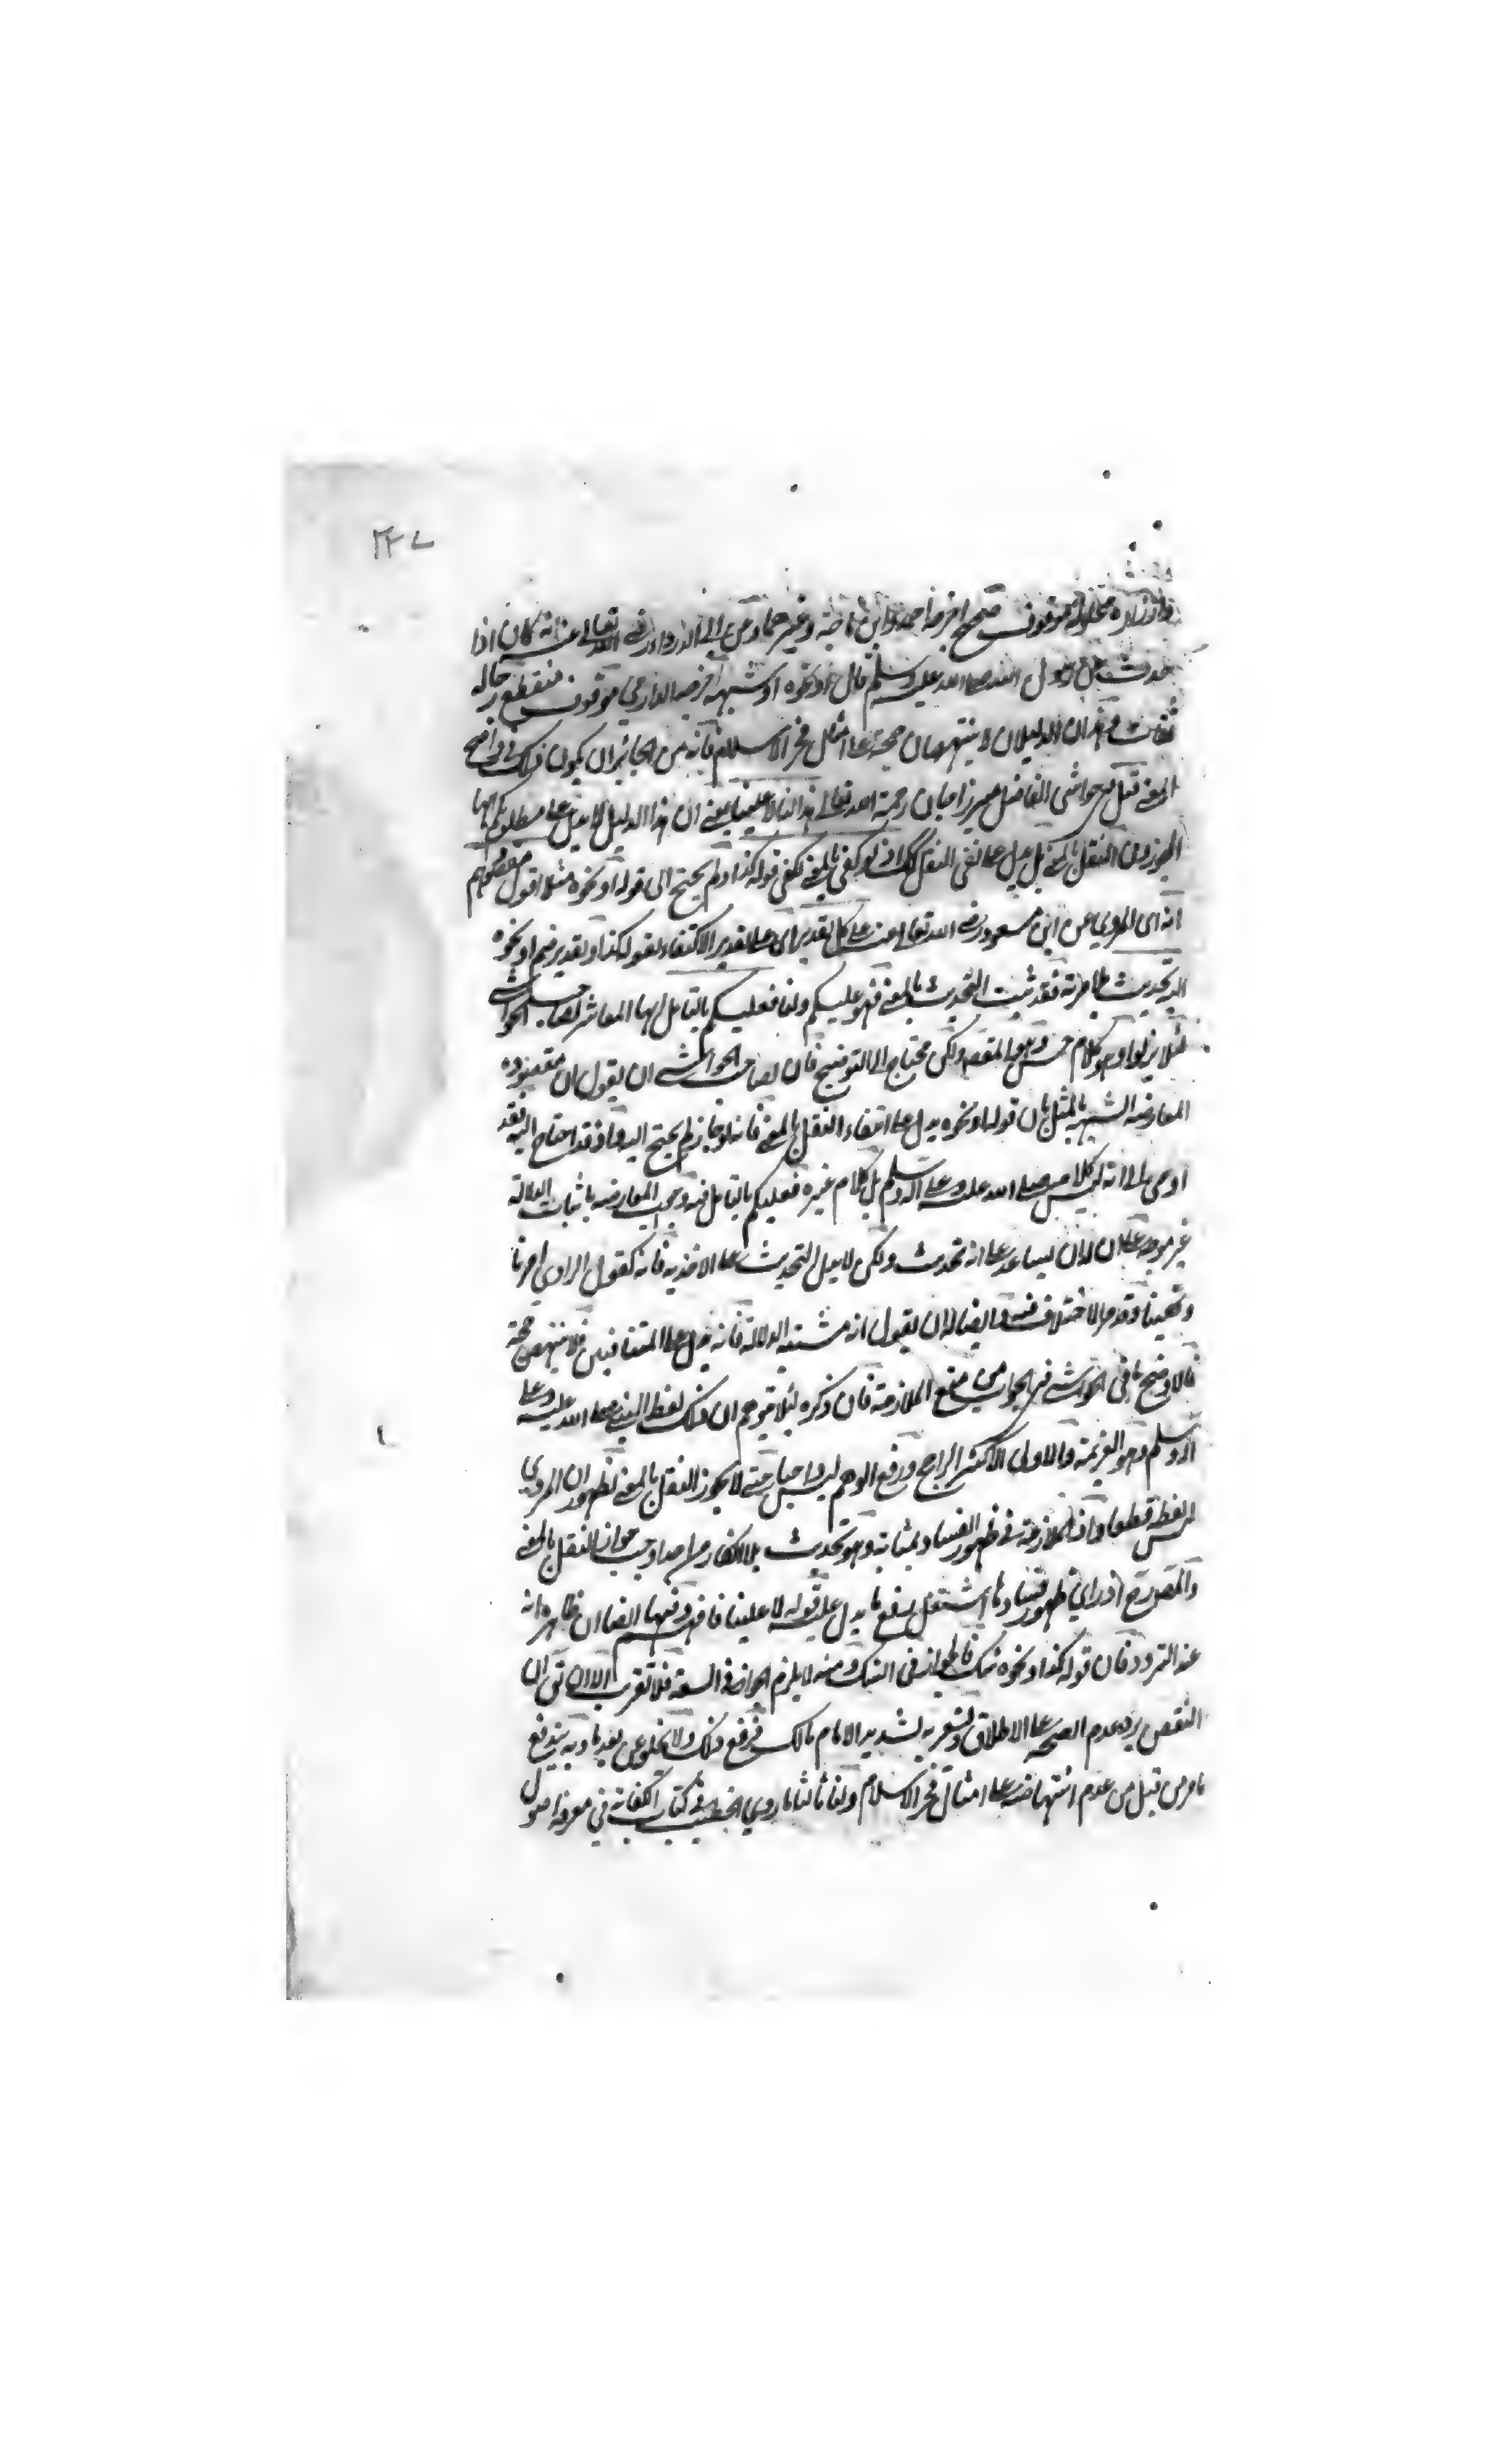 ٢٢٧
موقوف صحيح اخرجه احمد وابن ماجة وغيرهما وعن ابي الدرداء رضي الله تعالى عنه انه كان اذا
حدث عن رسول الله صلى الله عليه وسلم قال او نحوه او شبهه اخرجه الدارمي موقوف منقطع رجاله
ثقات وهذان الدليلان لا ينتهضان حجة على امثال فخر الاسلام فانه من الجائز ان يكون ذلك في
المعنى قيل في حواشي الفاضل ميرزا جان رحمة الله تعالى هذا لنا لا علينا يعني ان هذا الدليل لا يدل على مطلوبكم ايها
المجوزون النقل بالمعنى بل يدل على نفي النقل كذلك اذ لو كفى بالمعنى لكفى قوله كذا ولم يحتج الى قوله او نحوه مثلا اقول
انه اي المروي عن ابن مسعود رضي الله تعالى عنه على كل تقدير اي على تقدير الاكتفاء بقوله كذا وتقدير ضم او نحوه
اليه تحديث فقد ثبت التحديث بالمعنى فهو عليكم ولنا فعليكم بالتأمل ايها المعاشر لصاحب الحواشي
لئلا يزلوا وهو كلام حسن ولكن محتاج الى التوضيح فان لصاحب الحواشي ان يقول ان مقصوده
المعارضة الشبيهة بالمثل بان قوله او نحوه يدل على انتفاء النقل بالمعنى فانه لو جاز لم يحتج اليه واذ قد احتاج اليه فقد
اومى الى انه ليس كلامه صلى الله عليه وعلى اله وسلم بل كلام غيره فعليكم بالتأمل فيه المعارضة باثبات الدلالة
غير موجه على ان لا يساعد على انه تحديث ولكن لا يدل التحديث على الاخذ به فانه كقول الراوي امرنا
ونهينا وقد مر الاختلاف فيه وايضا له ان يقول انه مشتبه الدلالة فانه يدل على المتنافيين فلا ينتهض حجة
فالاوضح ما في الحواشي في الجواب من منع الملازمة فان ذكره لئلا يتوهم ان ذلك لفظ النبي صلى الله عليه وعلى
اله وسلم وهو العزيمة والاولى الاكثر الراجح ورفع الوهم ليس واجبا حتى لا يجوز النقل بالمعنى لظهور ان المروي
ليس لفظه قطعا واذ الملازمة في ظهور الفساد بمثابة وهو تحديث بلا انكار من احد وجب جواز النقل بالمعنى
والمصرح اذ راى ظهور فسادها اشتغل بدفع ما يدل عليه قوله لا علينا فافهم وفيهما ايضا ان ظاهره انه
عند التردد فان قوله كذا او نحوه شك فالجواز في الشك ومنه لا يلزم الجواز في السعة فلا تقريب الا ان
النقض يرد بعدم الصحة على الاطلاق ويشعر به تشديد الامام مالك في رفع ذلك ولا يخلو عن بعد ما وبه يندفع
ما مر من قبل من عدم انتهاضه على امثال فخر الاسلام ولنا ثالثا ما روى الخطيب في كتاب الكفاية في معرفة اصول